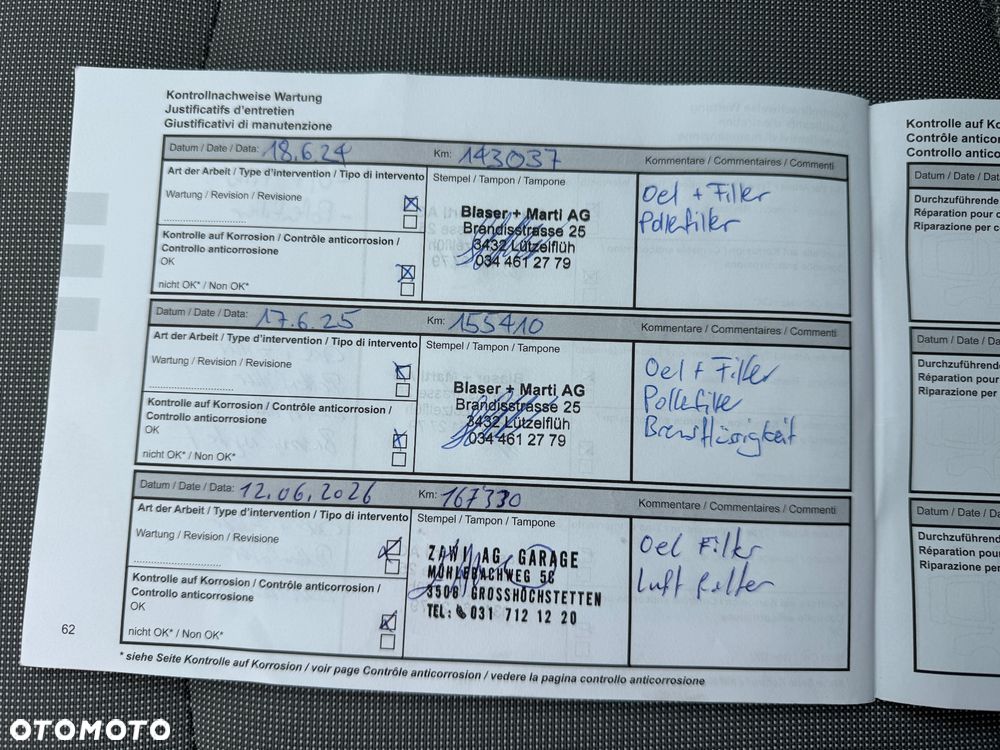 Kontrollnachweise Wartung
Justificatifs d'entretien
Giustificativi di manutenzione
Datum / Date / Data: 18.6.24 Km: 143037 Kommentare / Commentaires / Commenti
Art der Arbeit / Type d'intervention / Tipo di intervento
Wartung / Revision / Revisione
Kontrolle auf Korrosion / Contrôle anticorrosion /
Controllo anticorrosione
OK
nicht OK* / Non OK*
Stempel / Tampon / Tampone
Blaser + Marti AG
Brandisstrasse 25
3432 Lützelflüh
034 461 27 79
Oel + Filter
Pollefilter
Datum / Date / Data: 17.6.25 Km: 155410 Kommentare / Commentaires / Commenti
Art der Arbeit / Type d'intervention / Tipo di intervento
Wartung / Revision / Revisione
Kontrolle auf Korrosion / Contrôle anticorrosion /
Controllo anticorrosione
OK
nicht OK* / Non OK*
Stempel / Tampon / Tampone
Blaser + Marti AG
Brandisstrasse 25
3432 Lützelflüh
034 461 27 79
Oel + Filter
Pollefilter
Bremsflüssigkeit
Datum / Date / Data: 12.06.2026 Km: 167330 Kommentare / Commentaires / Commenti
Art der Arbeit / Type d'intervention / Tipo di intervento
Wartung / Revision / Revisione
Kontrolle auf Korrosion / Contrôle anticorrosion /
Controllo anticorrosione
OK
nicht OK* / Non OK*
Stempel / Tampon / Tampone
AG GARAGE
MÜHLEBACHWEG 5C
3506 GROSSHÖCHSTETTEN
TEL: 031 712 12 20
Oel Filter
Luft Filter
62
* siehe Seite Kontrolle auf Korrosion / voir page Contrôle anticorrosion / vedere la pagina controllo anticorrosione
Kontrolle auf Ko
Contrôle anticor
Controllo anticor
Datum / Date / Da
Durchzuführende
Réparation pour c
Riparazione per c
Datum / Date / Da
Durchzuführende
Réparation pour
Riparazione per
Datum / Date / Da
Durchzuführende
Réparation pou
Riparazione per
OTOMOTO